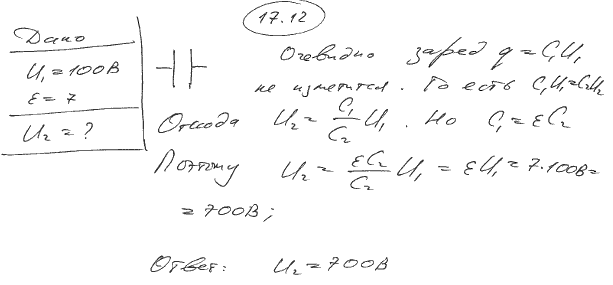 17.12
Дано
U₁ = 100В
ε = 7
U₂ = ?
Очевидно заряд q = C₁U₁
не изменится. То есть C₁U₁=C₂U₂
Отсюда U₂ = C₁/C₂ U₁. Но C₁ = εC₂
Поэтому U₂ = εC₂/C₂ U₁ = εU₁ = 7·100В =
= 700В;
Ответ: U₂ = 700В